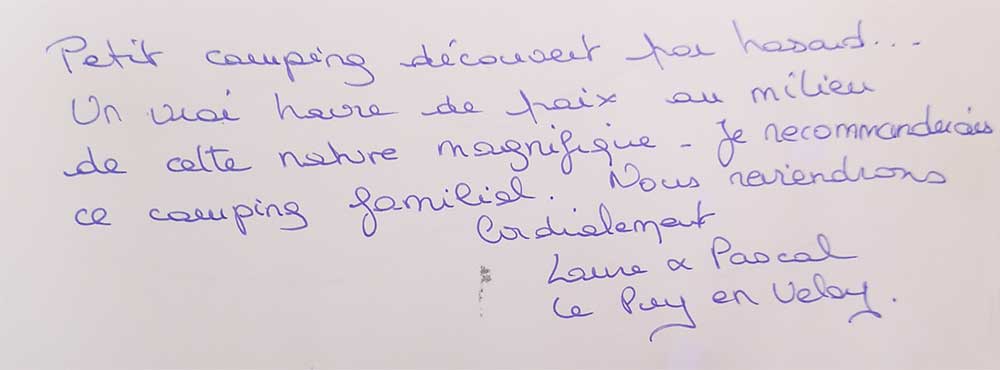 Petit camping découvert par hasard...
Un vrai havre de paix au milieu
de cette nature magnifique - Je recommanderais
ce camping familial. Nous reviendrons
Cordialement
Laure & Pascal
Le Puy en Velay.